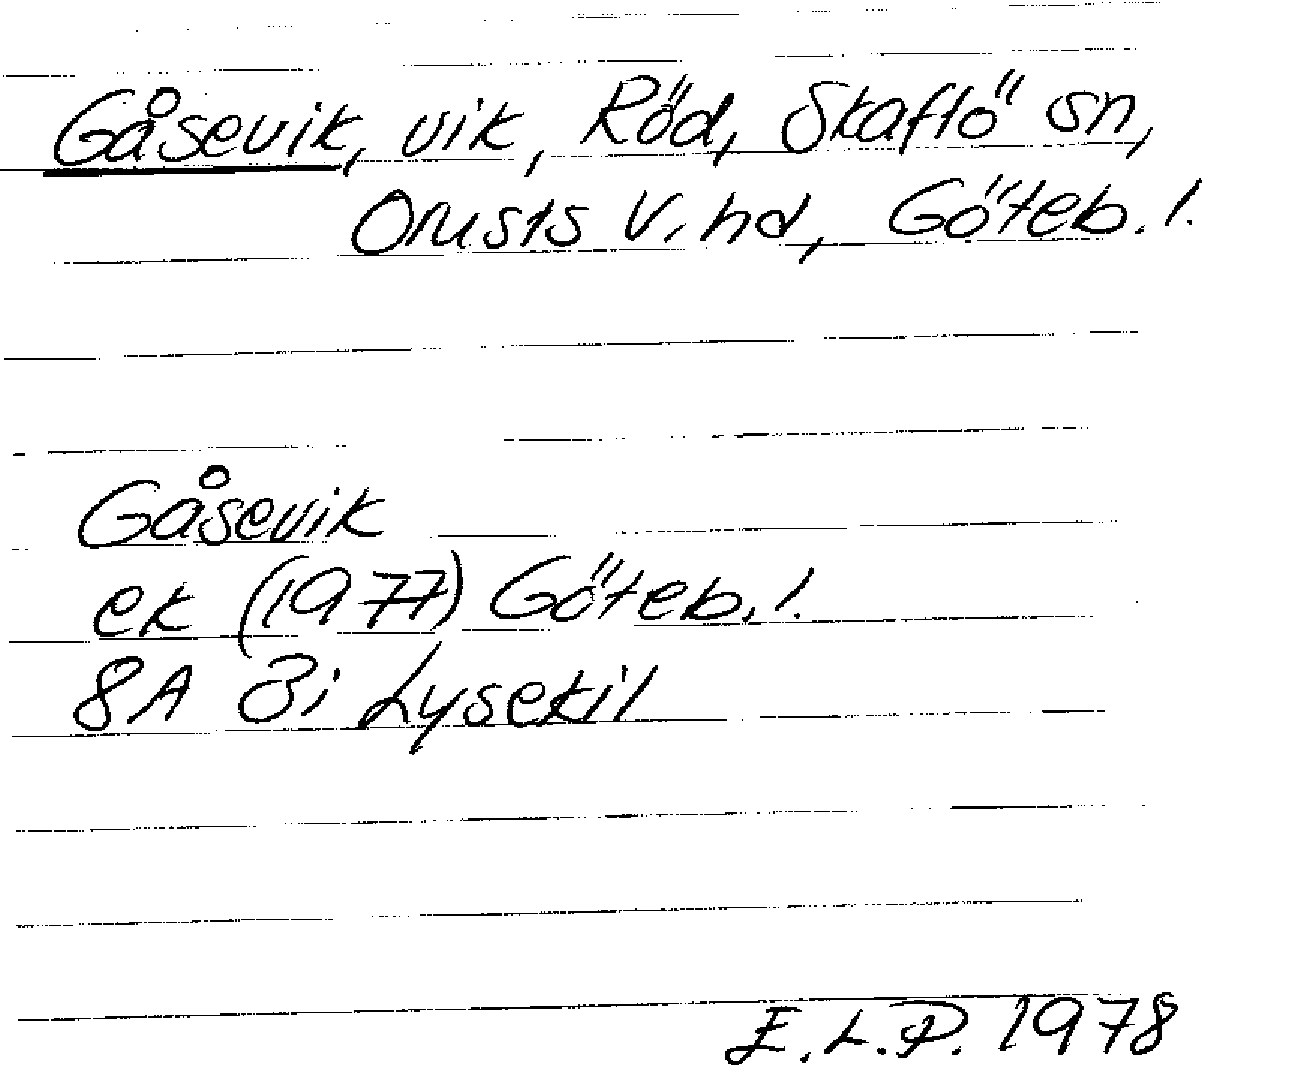 Gåsevik, vik, Röd, Skaftö sn,
Orusts V. hd, Göteb. l.
Gåsevik
ek (1977) Göteb. l.
8A 3i Lysekil
E.L.P. 1978